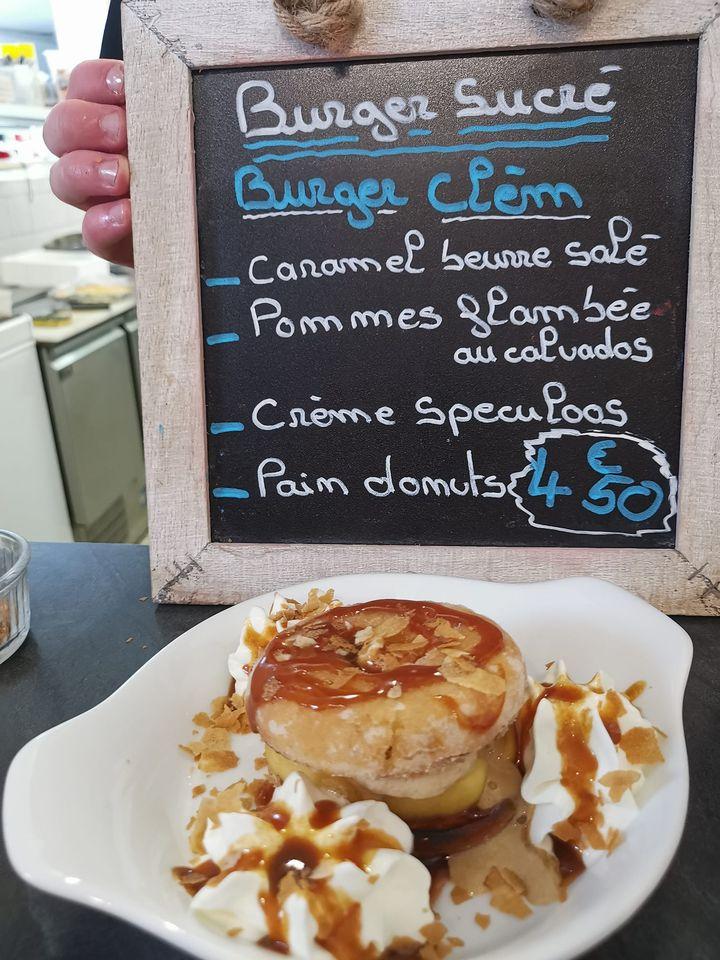 Burger Sucré
Burger Clèm
- Caramel beurre salé
- Pommes flambée
au calvados
- Crème Speculoos
- Pain donuts 4€50